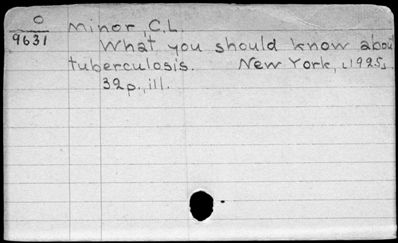 O
9631
Minor, C.L.
What you should know about
tuberculosis. New York, [1925]
32p., ill.